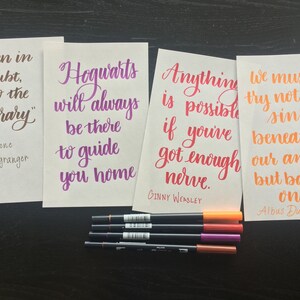 en in
bt,
o the
rary"
granger
"Hogwarts
will always
be there
to guide
you home"
Anything
is possible
if you've
got enough
nerve.
GINNY WEASLEY
we mu
try not
sin
benea
our an
but be
on
ALBUS DU